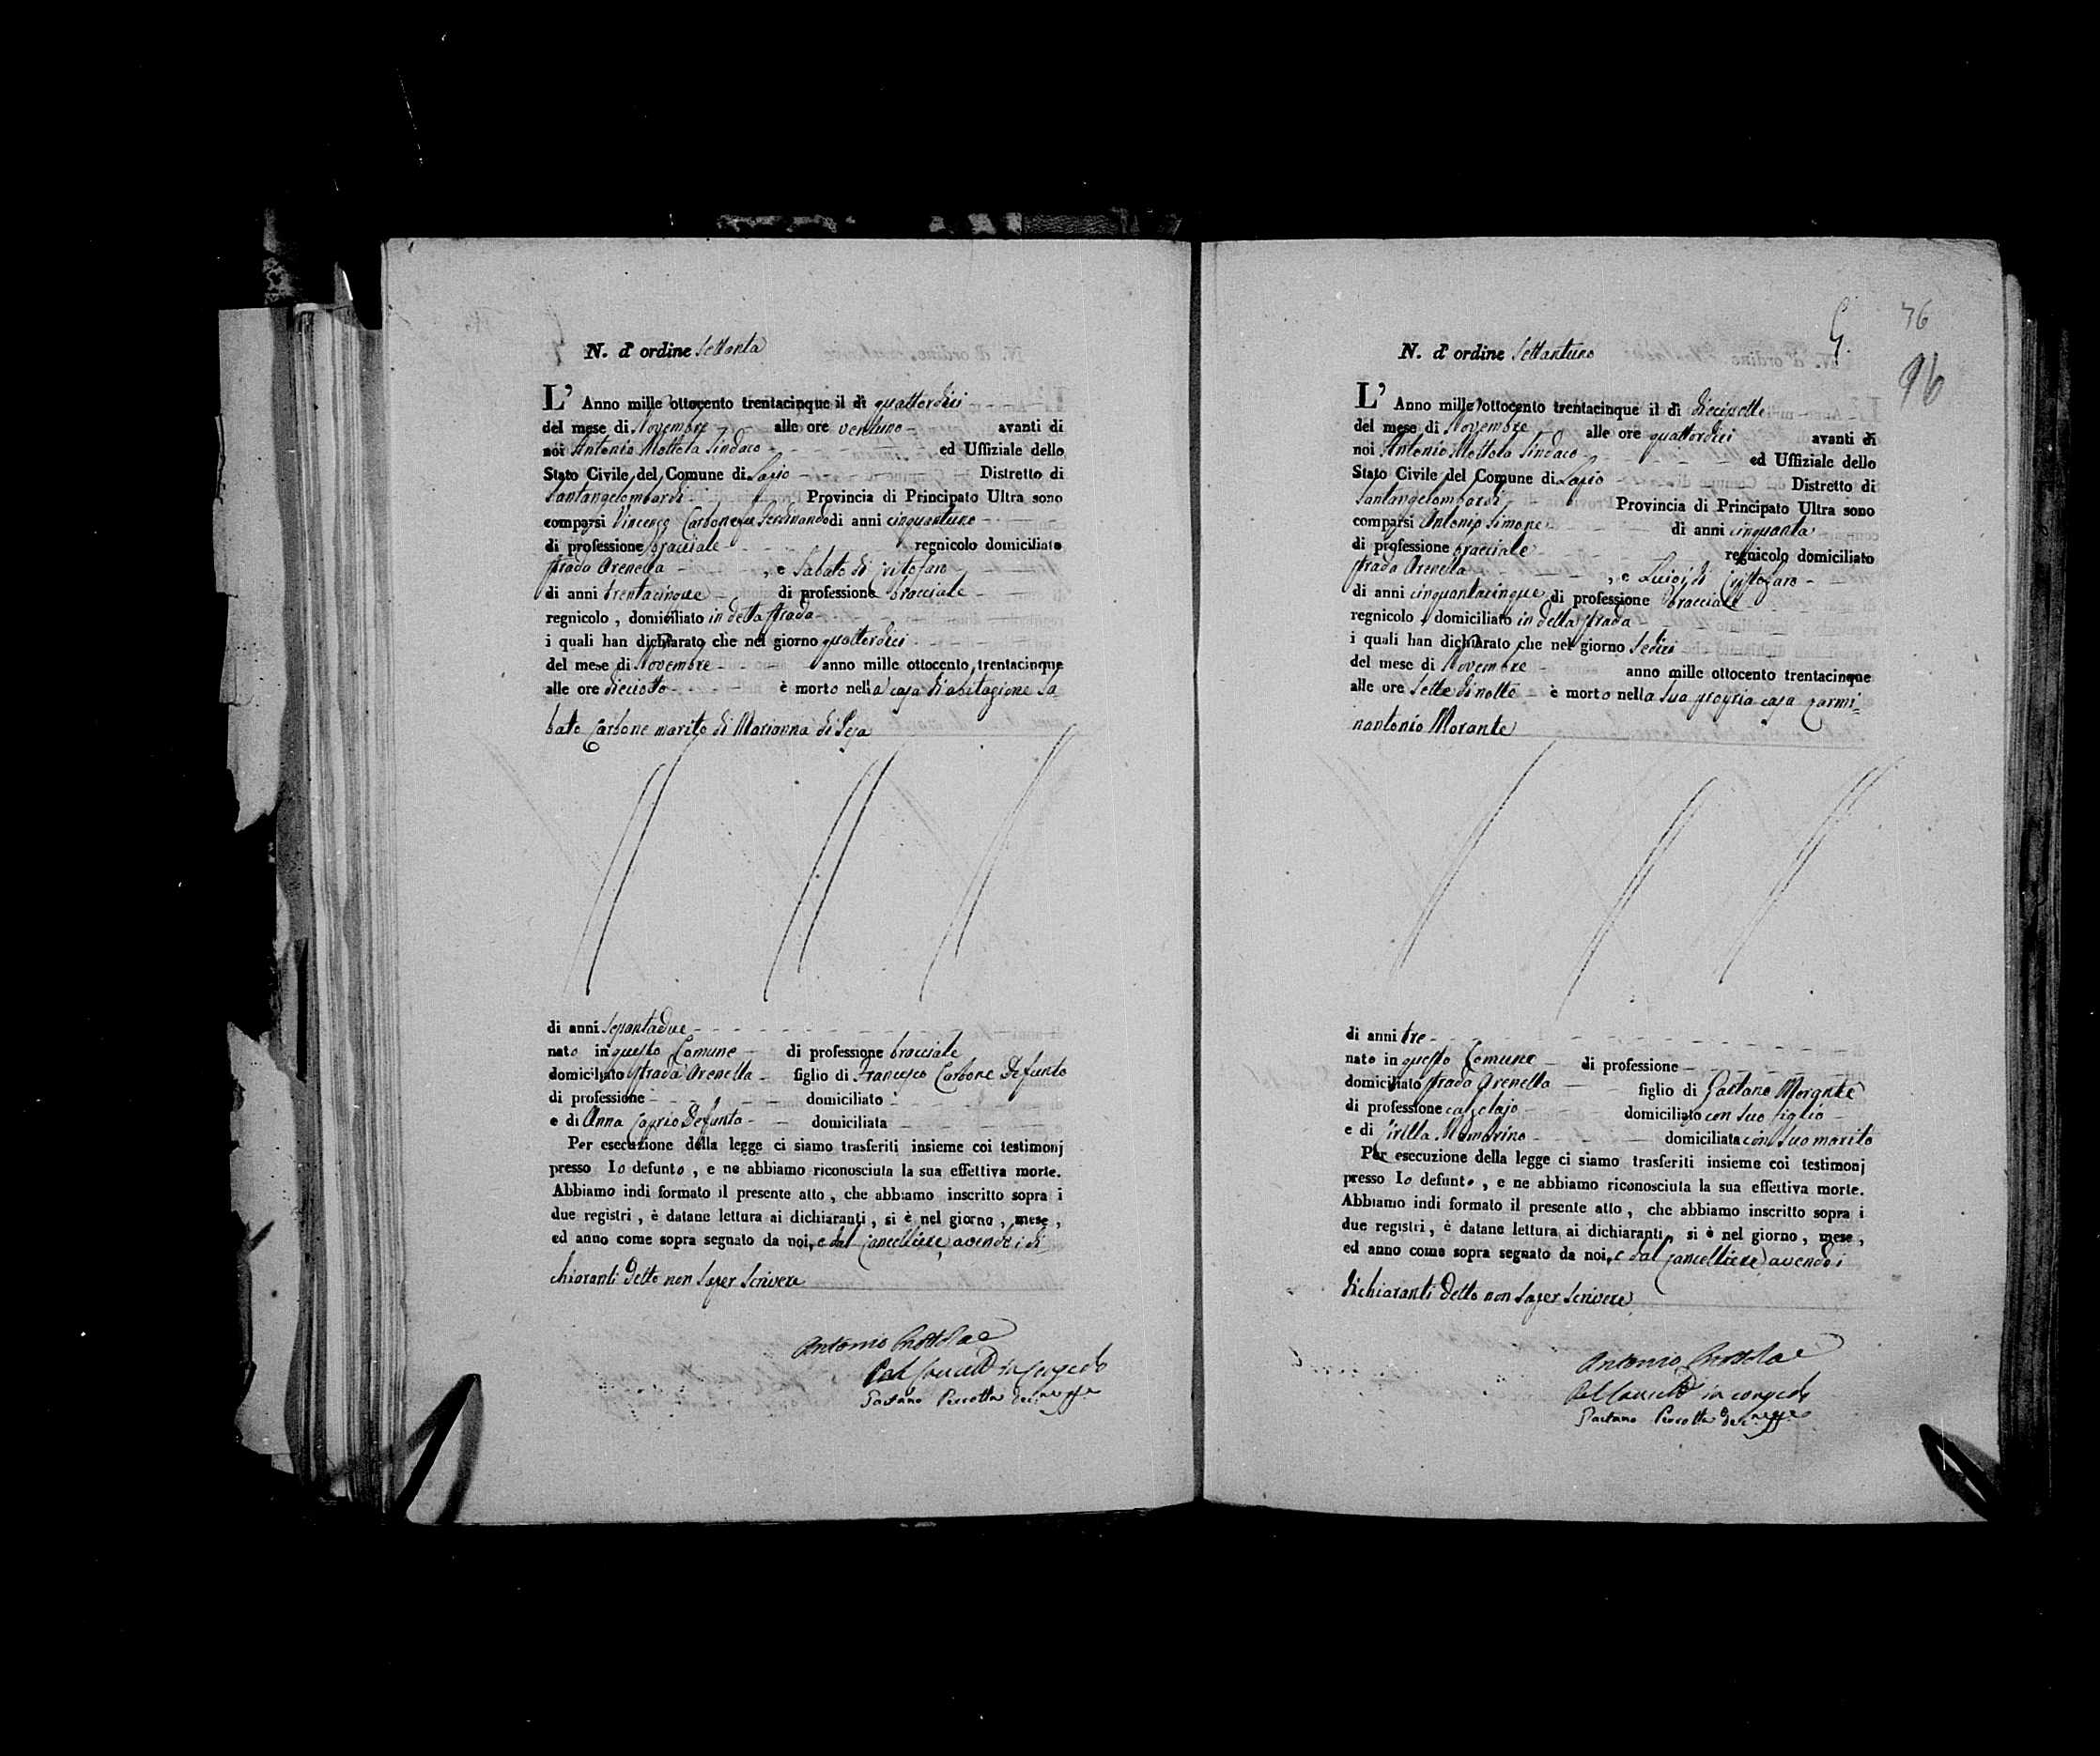 N. d' ordine Settanta
L' Anno mille ottocento trentacinque il dì quattordici
del mese di Novembre alle ore ventuno avanti di
noi Antonio Mottola Sindaco ed Uffiziale dello
Stato Civile del Comune di Lapio Distretto di
Santangelombardi Provincia di Principato Ultra sono
comparsi Vincenzo Carbone Ferdinando di anni cinquantuno
di professione bracciale regnicolo domiciliato
strada Arenella , e Sabato di Cristofaro
di anni trentacinque di professione bracciale
regnicolo , domiciliato in detta strada
i quali han dichiarato che nel giorno quattordici
del mese di Novembre anno mille ottocento trentacinque
alle ore dieciotto è morto nella casa di abitazione Sa
bato Carbone marito di Marianna di Pesa
di anni sessantadue
nato in questo Comune di professione bracciale
domiciliato strada Arenella figlio di Francesco Carbone Defunto
di professione domiciliato
e di Anna Caprio Defunta domiciliata
Per esecuzione della legge ci siamo trasferiti insieme coi testimonj
presso lo defunto , e ne abbiamo riconosciuta la sua effettiva morte.
Abbiamo indi formato il presente atto , che abbiamo inscritto sopra i
due registri , è datane lettura ai dichiaranti , si è nel giorno , mese ,
ed anno come sopra segnato da noi, e dal Cancelliere avendo i di
chiaranti detto non saper scrivere
Antonio Mottola
Pel Cancell in congedo
Gaetano Perrotta
76
96
N. d' ordine Settantuno
L' Anno mille ottocento trentacinque il dì diecisette
del mese di Novembre alle ore quattordici avanti di
noi Antonio Mottola Sindaco ed Uffiziale dello
Stato Civile del Comune di Lapio Distretto di
Santangelombardi Provincia di Principato Ultra sono
comparsi Antonio Simone di anni cinquanta
di professione bracciale regnicolo domiciliato
strada Arenella , e Luigi di Cristofaro
di anni cinquantacinque di professione bracciale
regnicolo domiciliato in detta strada
i quali han dichiarato che nel giorno sedici
del mese di Novembre anno mille ottocento trentacinque
alle ore sette di notte è morto nella sua propria casa Carmi=
nantonio Morante
di anni tre
nato in questo Comune di professione
domiciliato strada Arenella figlio di Gaetano Morante
di professione calzolajo domiciliato con suo figlio
e di Cirilla domiciliata con suo marito
Per esecuzione della legge ci siamo trasferiti insieme coi testimonj
presso lo defunto , e ne abbiamo riconosciuta la sua effettiva morte.
Abbiamo indi formato il presente atto , che abbiamo inscritto sopra i
due registri , è datane lettura ai dichiaranti , si è nel giorno , mese ,
ed anno come sopra segnato da noi, e dal Cancelliere avendo i
dichiaranti detto non saper scrivere
Antonio Mottola
Pel Cancell in congedo
Gaetano Perrotta